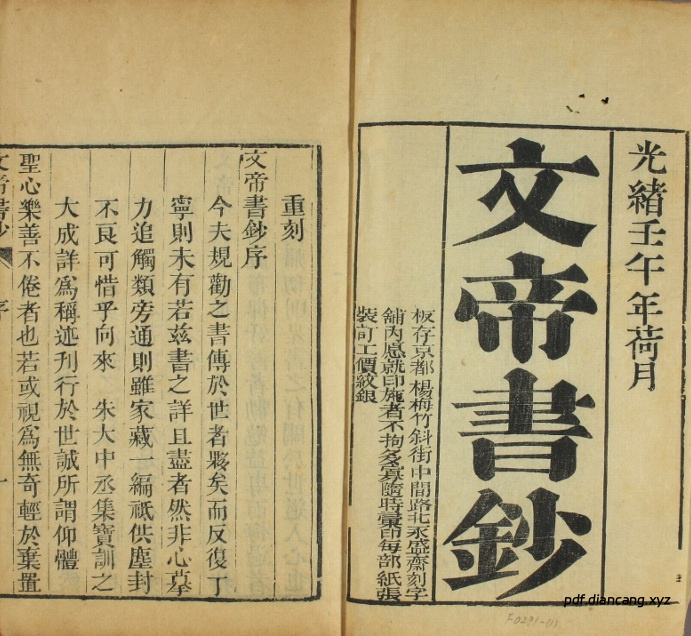 光緒壬午年荷月
文帝書鈔
板存京都楊梅竹斜街中間路北永盛齋刻字
舖內愿就印施者不拘多寡隨時彙印每部紙張
裝訂工價紋銀
重刻
文帝書鈔序
今夫規勸之書傳於世者夥矣而反復丁
寧則未有若茲書之詳且盡者然非心摹
力追觸類旁通則雖家藏一編祇供塵封
不良可惜乎向來 朱大中丞集寶訓之
大成詳為稱述刊行於世誠所謂仰體
聖心樂善不倦者也若或視為無奇輕於棄置
文帝書鈔 序 一
pdf.diancang.xyz